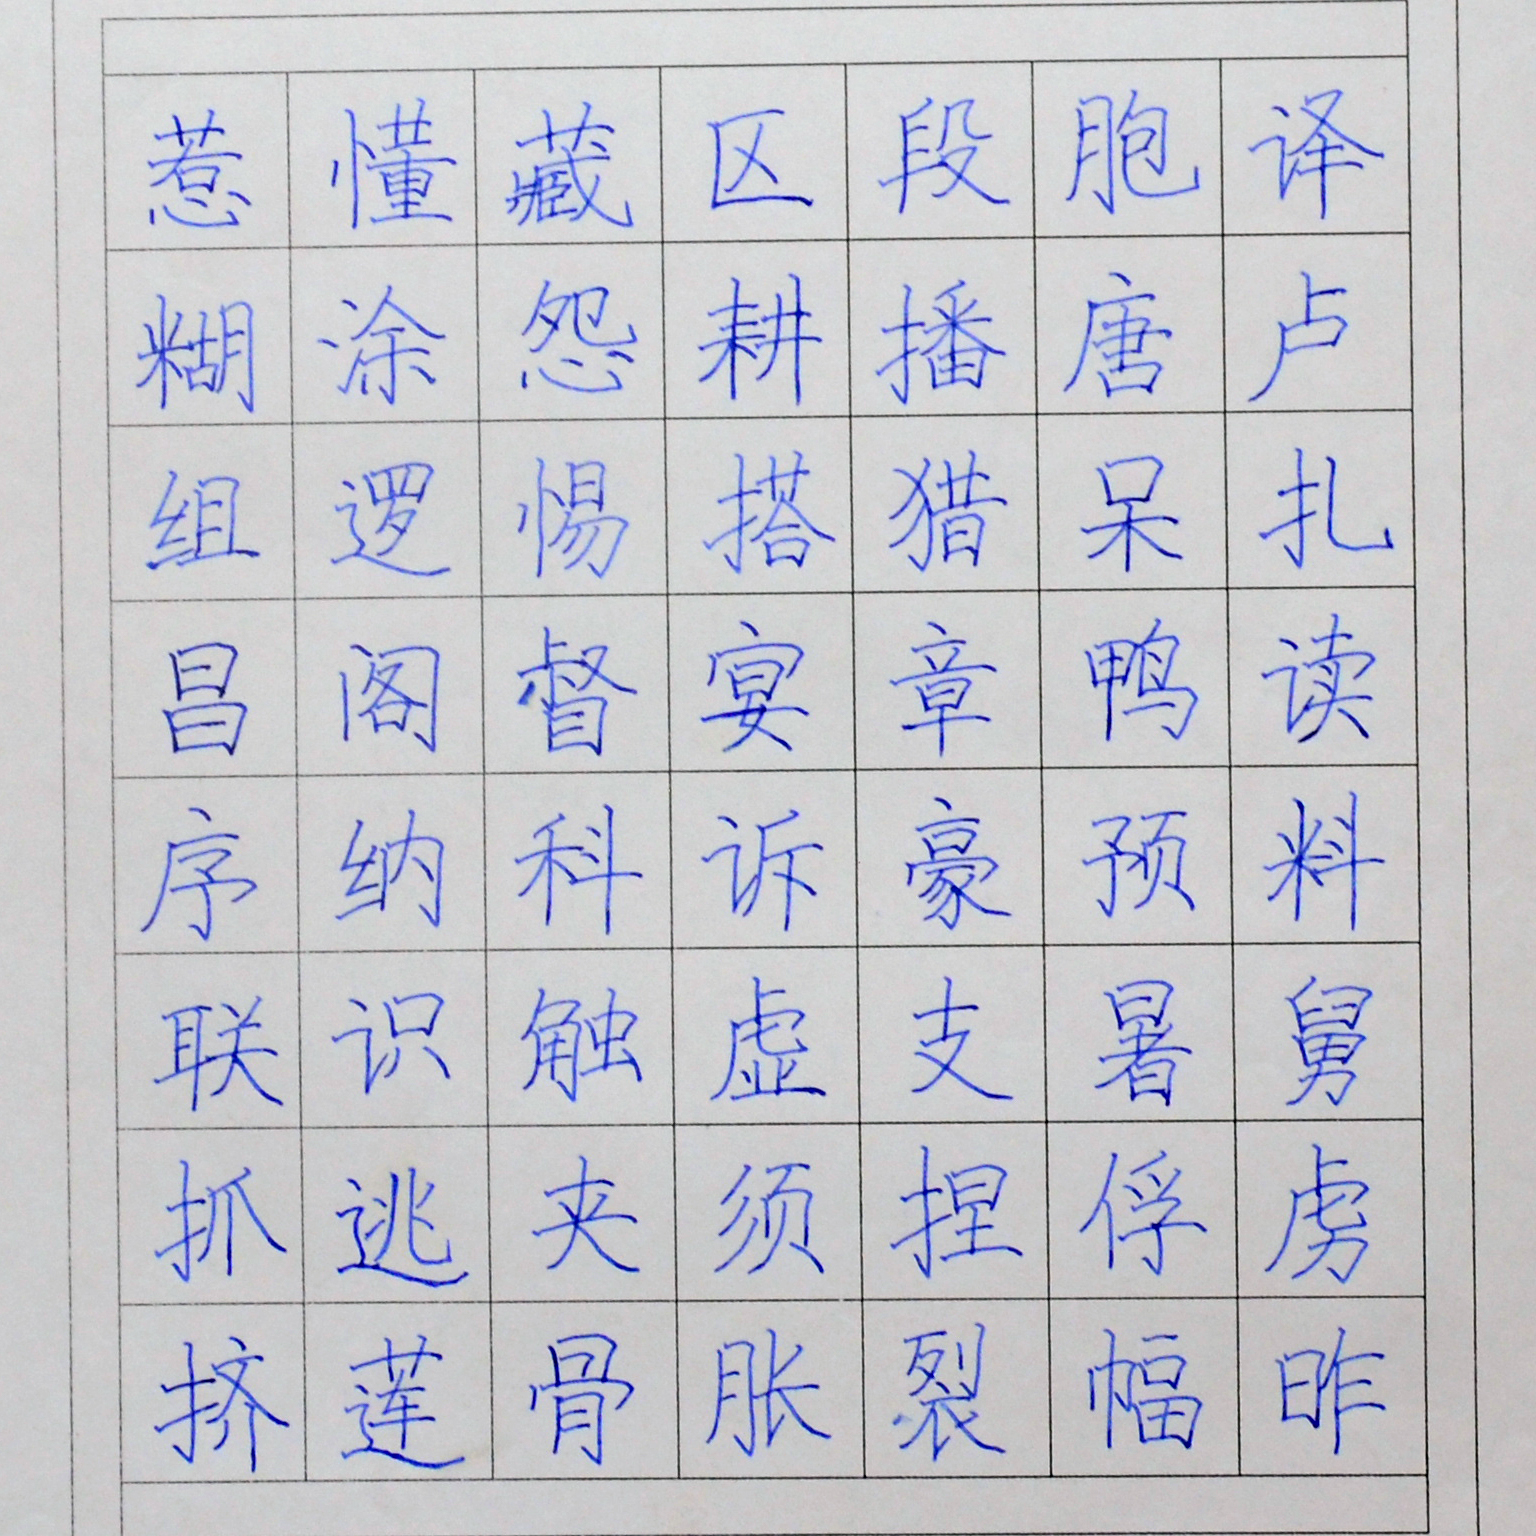 惹懂藏区段胞译
糊涂怨耕播唐卢
组逻惕搭猎呆扎
昌阁督宴章鸭读
序纳科诉豪预料
联识触虚支暑舅
抓逃夹须捏俘虏
挤莲骨胀裂幅昨